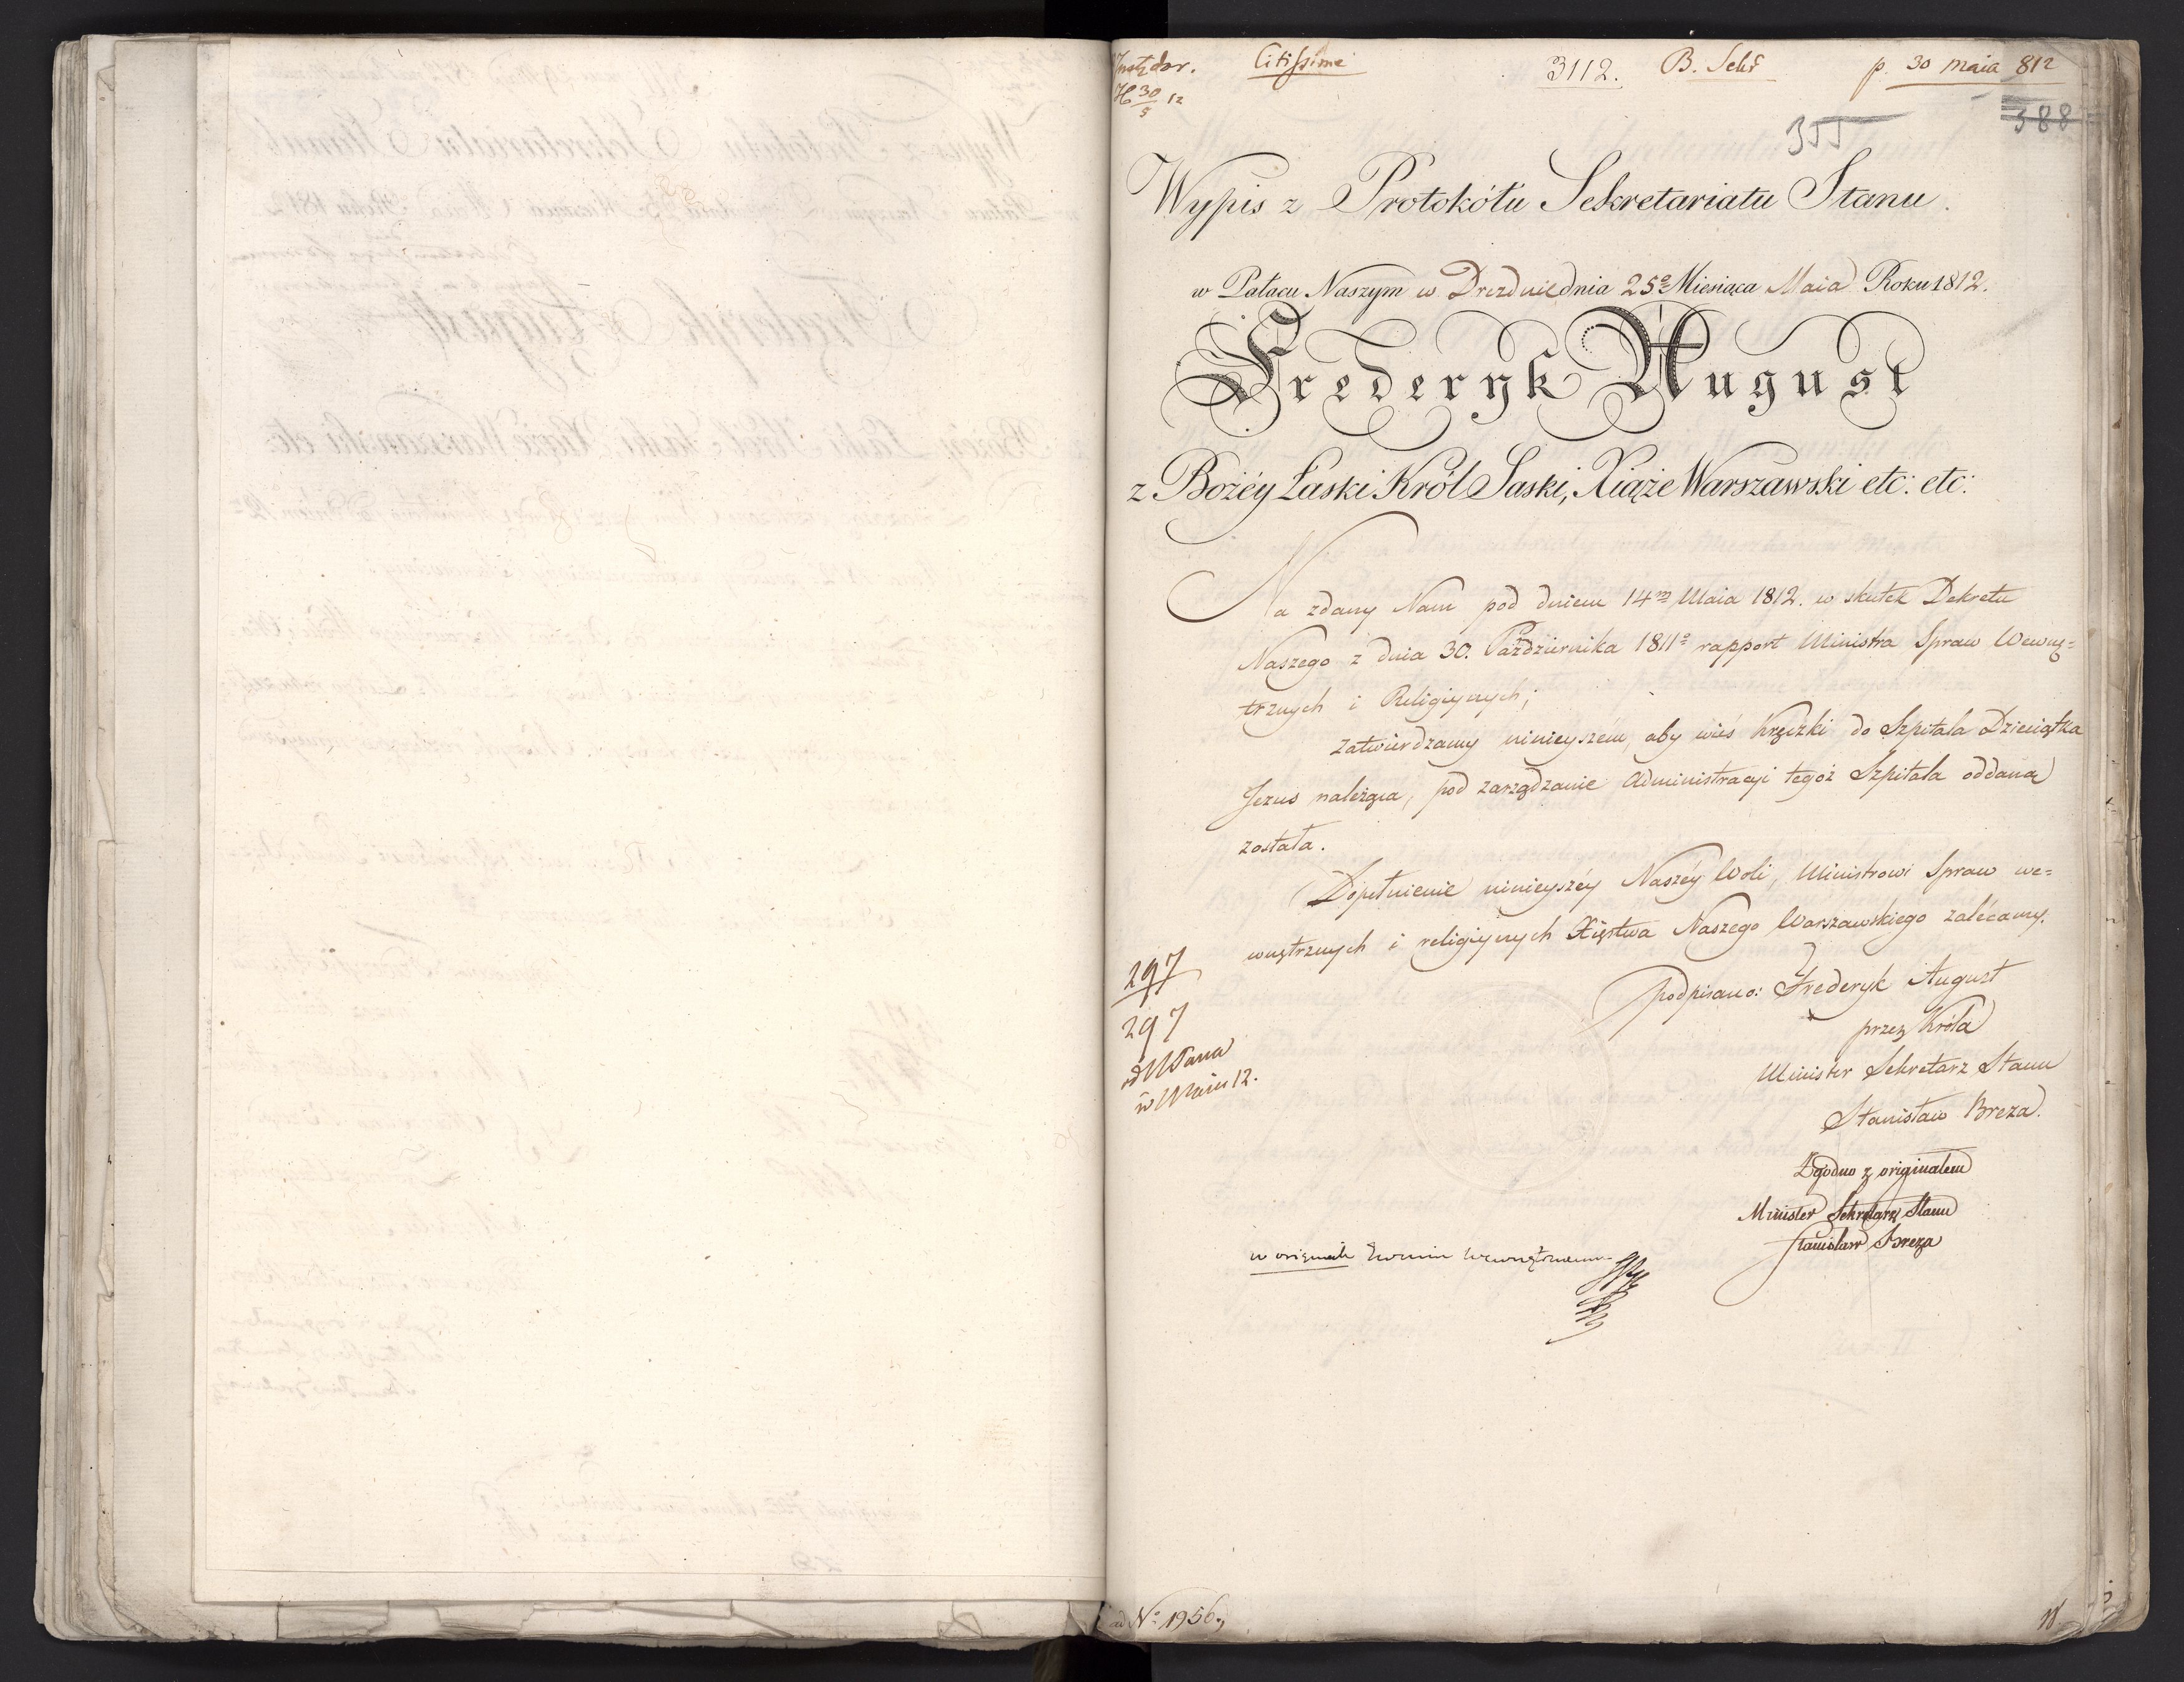 Citissime
3112. B. Sekr p. 30 maia 812
30/5 12
355 388
Wypis z Protokółu Sekretariatu Stanu.
w Pałacu Naszym w Dreznie dnia 25º Miesiąca Maia Roku 1812.
Frederyk August
z Bożéy Łaski Król Saski, Xiąże Warszawski etc: etc:
Na zdany Nam pod dniem 14m Maia 1812. w skutek Dekretu
Naszego z dnia 30. Października 1811º rapport Ministra Spraw Wewnę=
trznych i Religiynych;
zatwierdzamy ninieyszém, aby wieś Kręczki do Szpitala Dzieciątka
Jezus należąca, pod zarządzanie Administracyi tegoż Szpitala oddana
została.
Dopełnienie ninieyszéy Naszéy Woli, Ministrowi Spraw we=
wnętrznych i religiynych Xięstwa Naszego Warszawskiego zalécamy.
podpisano: Frederyk August
przez Króla
Minister Sekretarz Stanu
Stanisław Breza.
Zgodno z originałem
Minister Sekretarz Stanu
Stanisław Breza
297
297
w Maiu 12.
w originale
ad Nº 1956.